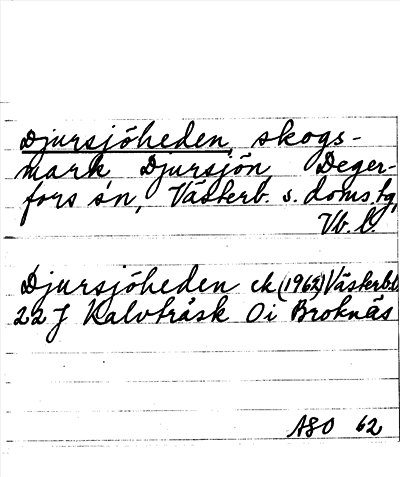 Djursjöheden, skogs-
mark Djursjön, Deger-
fors sn, Västerb. s. doms.tg,
Vb. l.
Djursjöheden ek (1962) Västerb.l
22 J Kalvträsk Oi Broknäs
ASO 62